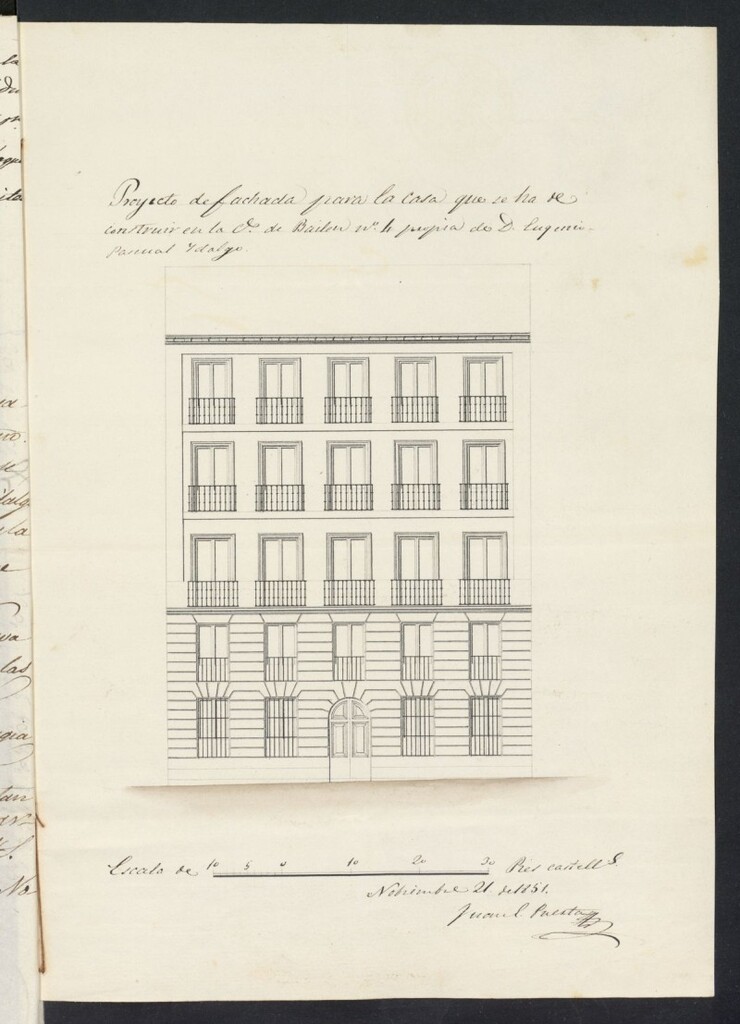 Proyecto de fachada para la casa que se ha de
construir en la C.e de Bailen nº. 4 propia de D. Eugenio
Pascual Ydalgo.
Escala de 10 5 0 10 20 30 Pies castell.s
Nobiembre 21 de 1851.
Juan C. Puerta